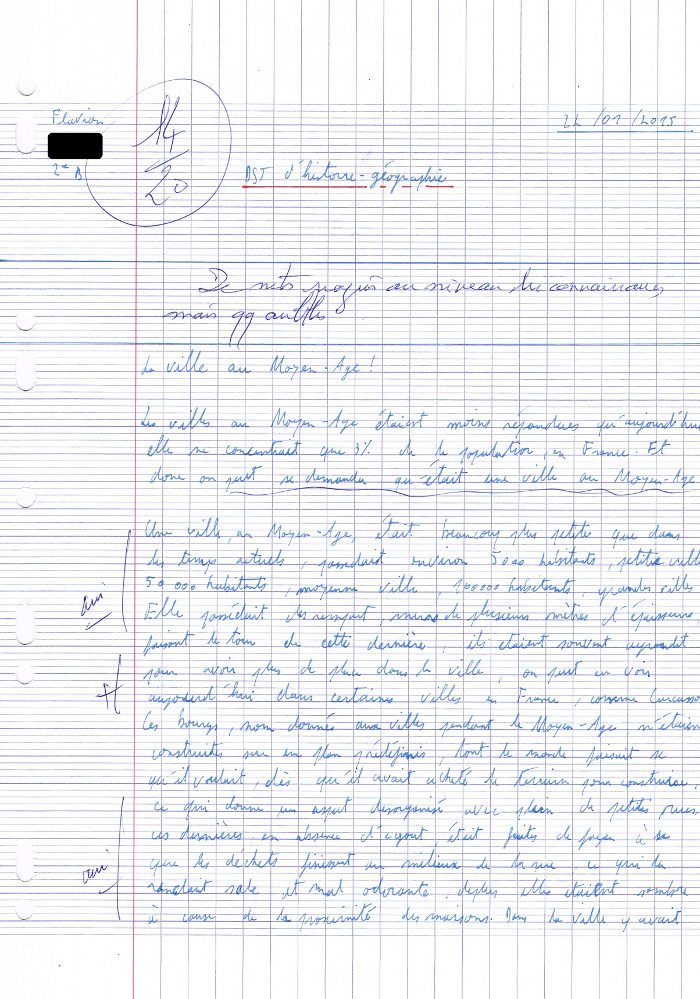 Flavien
22 /01 /2015
14
20
2de B
DST d'histoire-géographie
De nets progrès au niveau des connaissances
mais qq oublis
La ville au Moyen-Age !
Les villes au Moyen-Age étaient moins répandues qu'aujourd'hui
elle ne concentrait que 3% de la population, en France. Et
donc on peut se demander qu'était une ville au Moyen-Age
Une ville, au Moyen-Age, était beaucoup plus petite que dans
les temps actuels, possédait environ 5000 habitants, petite ville
50 000 habitants, moyenne ville, 100000 habitants, grandes villes
oui
Elle possédait des rempart, murs de plusieurs mètres d'épaisseurs
faisant le tour de cette dernière, ils étaient souvent agrandit
pour avoir plus de place dans la ville, on peut en voir
aujourd'hui dans certaines villes en France, comme Carcasso
Ces Bourgs, nom donnés aux villes pendant le Moyen-Age n'étaien
construits sur un plan prédéfinis, tout le monde faisait ce
qu'il voulait, dès qu'il avait acheté le terrain pour construire,
ce qui donne un aspect desorganisé avec plein de petites rues
ces dernières, en absence d'égout, était faites de façon à ce
que les déchets finissent au milieux de la rue ce qui la
oui
rendait sale et mal odorante, de plus elle étaient sombre
à cause de la proximité des maisons. Dans la ville y avait